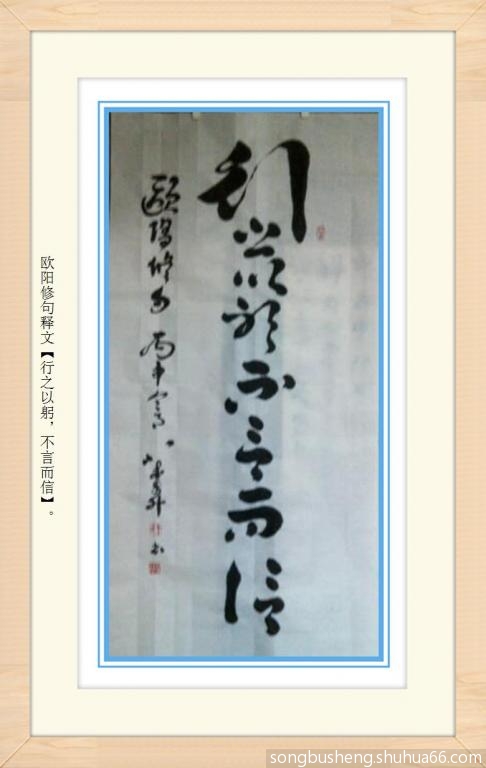 行之以躬不言而信
歐陽修句 丙申
欧阳修句释文【行之以躬，不言而信】。
songbusheng.shuhua66.com